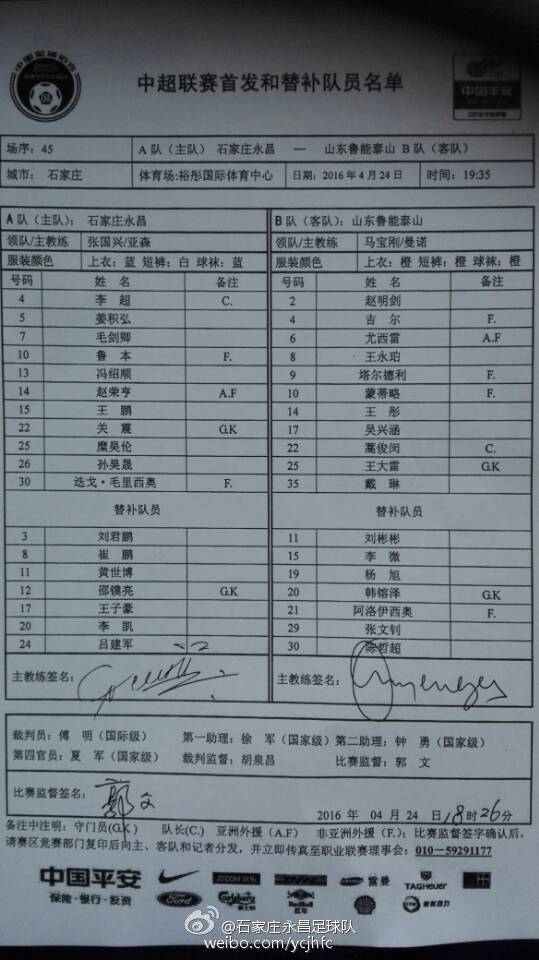 中超联赛首发和替补队员名单
中国平安
场序: 45 A 队（主队） 石家庄永昌 — 山东鲁能泰山 B 队（客队）
城市: 石家庄 体育场:裕彤国际体育中心 日期: 2016 年 4 月 24 日 时间: 19:35
A 队（主队）: 石家庄永昌 B 队（客队）: 山东鲁能泰山
领队/主教练 张国兴/亚森 领队/主教练 马宝刚/曼诺
服装颜色 上衣: 蓝 短裤: 白 球袜: 蓝 服装颜色 上衣: 橙 短裤: 橙 球袜: 橙
号码 姓 名 备注 号码 姓 名 备注
4 李 超 C. 2 赵明剑
5 姜积弘 4 吉 尔 F.
7 毛剑卿 6 尤西雷 A.F
10 鲁 本 F. 8 王永珀
13 冯绍顺 9 塔尔德利 F.
14 赵荣亨 A.F 10 蒙蒂略 F.
15 王 鹏 14 王 彤
22 关 震 G.K 17 吴兴涵
25 糜昊伦 22 蒿俊闵 C.
26 孙昊晟 25 王大雷 G.K
30 迭戈·毛里西奥 F. 35 戴 琳
替补队员 替补队员
3 刘君鹏 11 刘彬彬
8 崔 鹏 15 李 微
11 黄世博 19 杨 旭
12 邵镤亮 G.K 20 韩镕泽 G.K
17 王子豪 21 阿洛伊西奥 F.
20 李 凯 29 张文钊
24 吕建军 30 陈哲超
主教练签名: 主教练签名:
裁判员: 傅 明（国际级） 第一助理: 徐 军（国家级） 第二助理: 钟 勇（国家级）
第四官员: 夏 军（国家级） 裁判监督: 胡泉昌 比赛监督: 郭 文
比赛监督签名: 郭文
2016 年 04 月 24 日 18 时 26 分
备注中注明: 守门员(G.K ) 队长(C.) 亚洲外援（A.F） 非亚洲外援（F.）: 比赛监督签字确认后,
请赛区竞赛部门复印后向主、客队和记者分发，并立即传真至职业联赛理事会: 010—59291177
中国平安
保险·银行·投资
Ford
Carlsberg
Red Bull
红牛
雷曼
TAGHeuer
@石家庄永昌足球队
weibo.com/ycjhfc